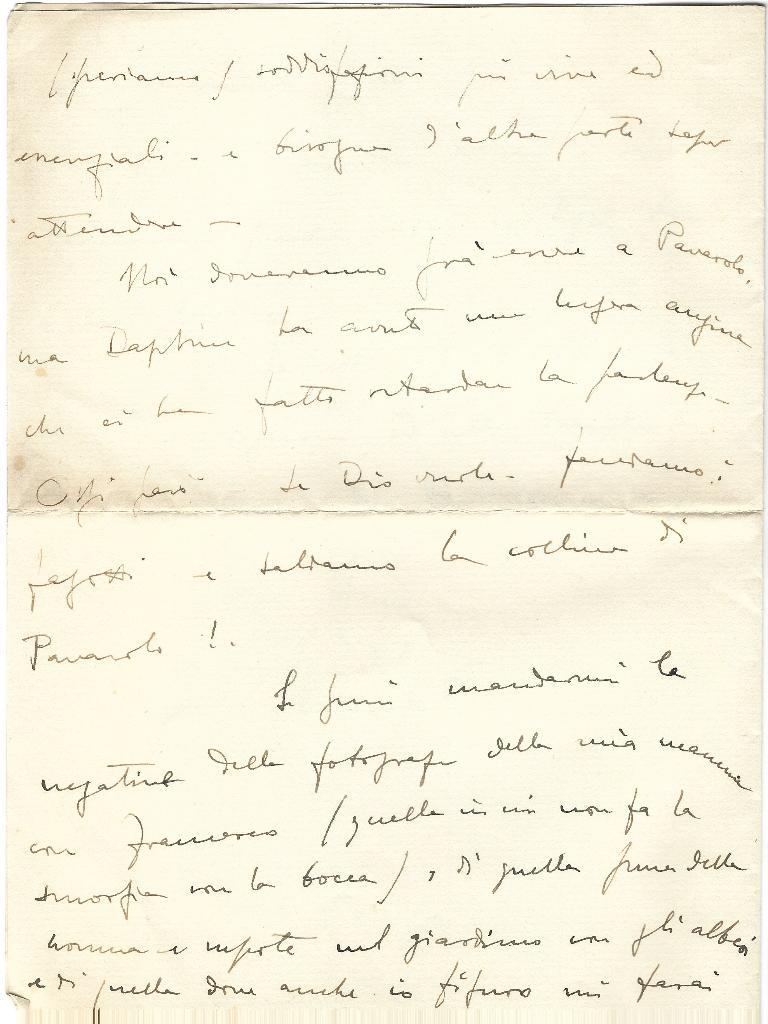 (speriamo) soddisfazioni più vive ed
essenziali - e bisogna d'altra parte saper
attendere -
Noi dovevamo già essere a Pavarolo,
ma Daphne ha avuto una leggera angina
che ci ha fatto ritardare la partenza -
Oggi però - se Dio vuole - facciamo i
fagotti e saliamo la collina di
Pavarolo !.
Se puoi mandarmi la
negativa della fotografia della mia mamma
con Francesco (quella in cui non fa la
smorfia con la bocca), di quella della
nonna e nipote nel giardino con gli alberi
e di quella dove anche io figuro mi farai